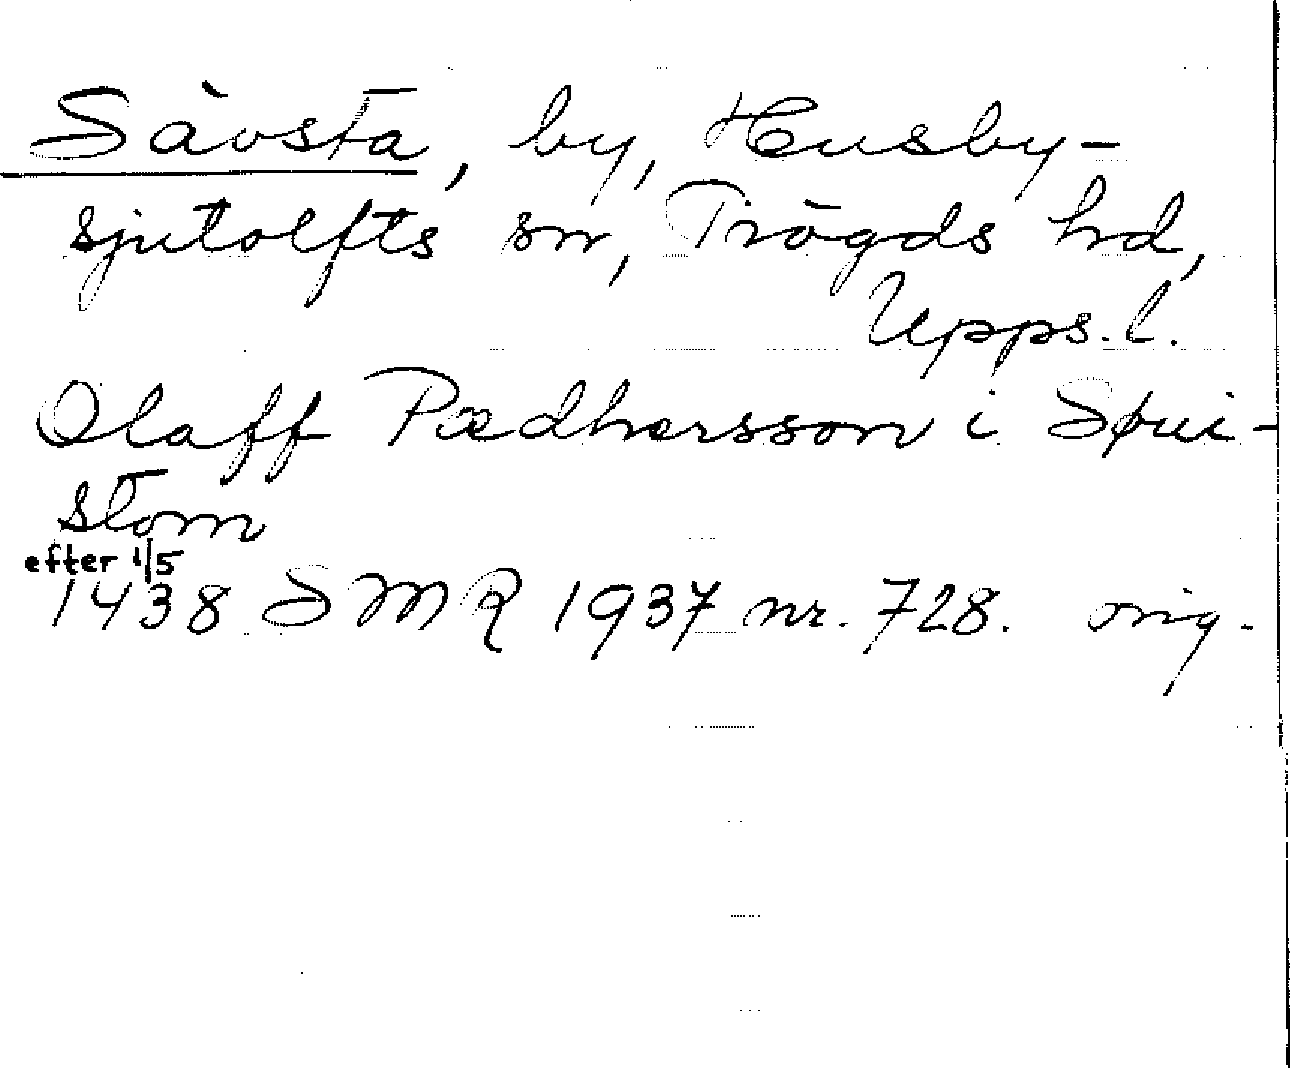 Sävsta, by, Husby-
sjutolfts sn, Trögds hd,
Upps. l.
Olaff Pædhersson i Søui-
stom
efter 1/5
1438 SMR 1937 nr. 728. orig.